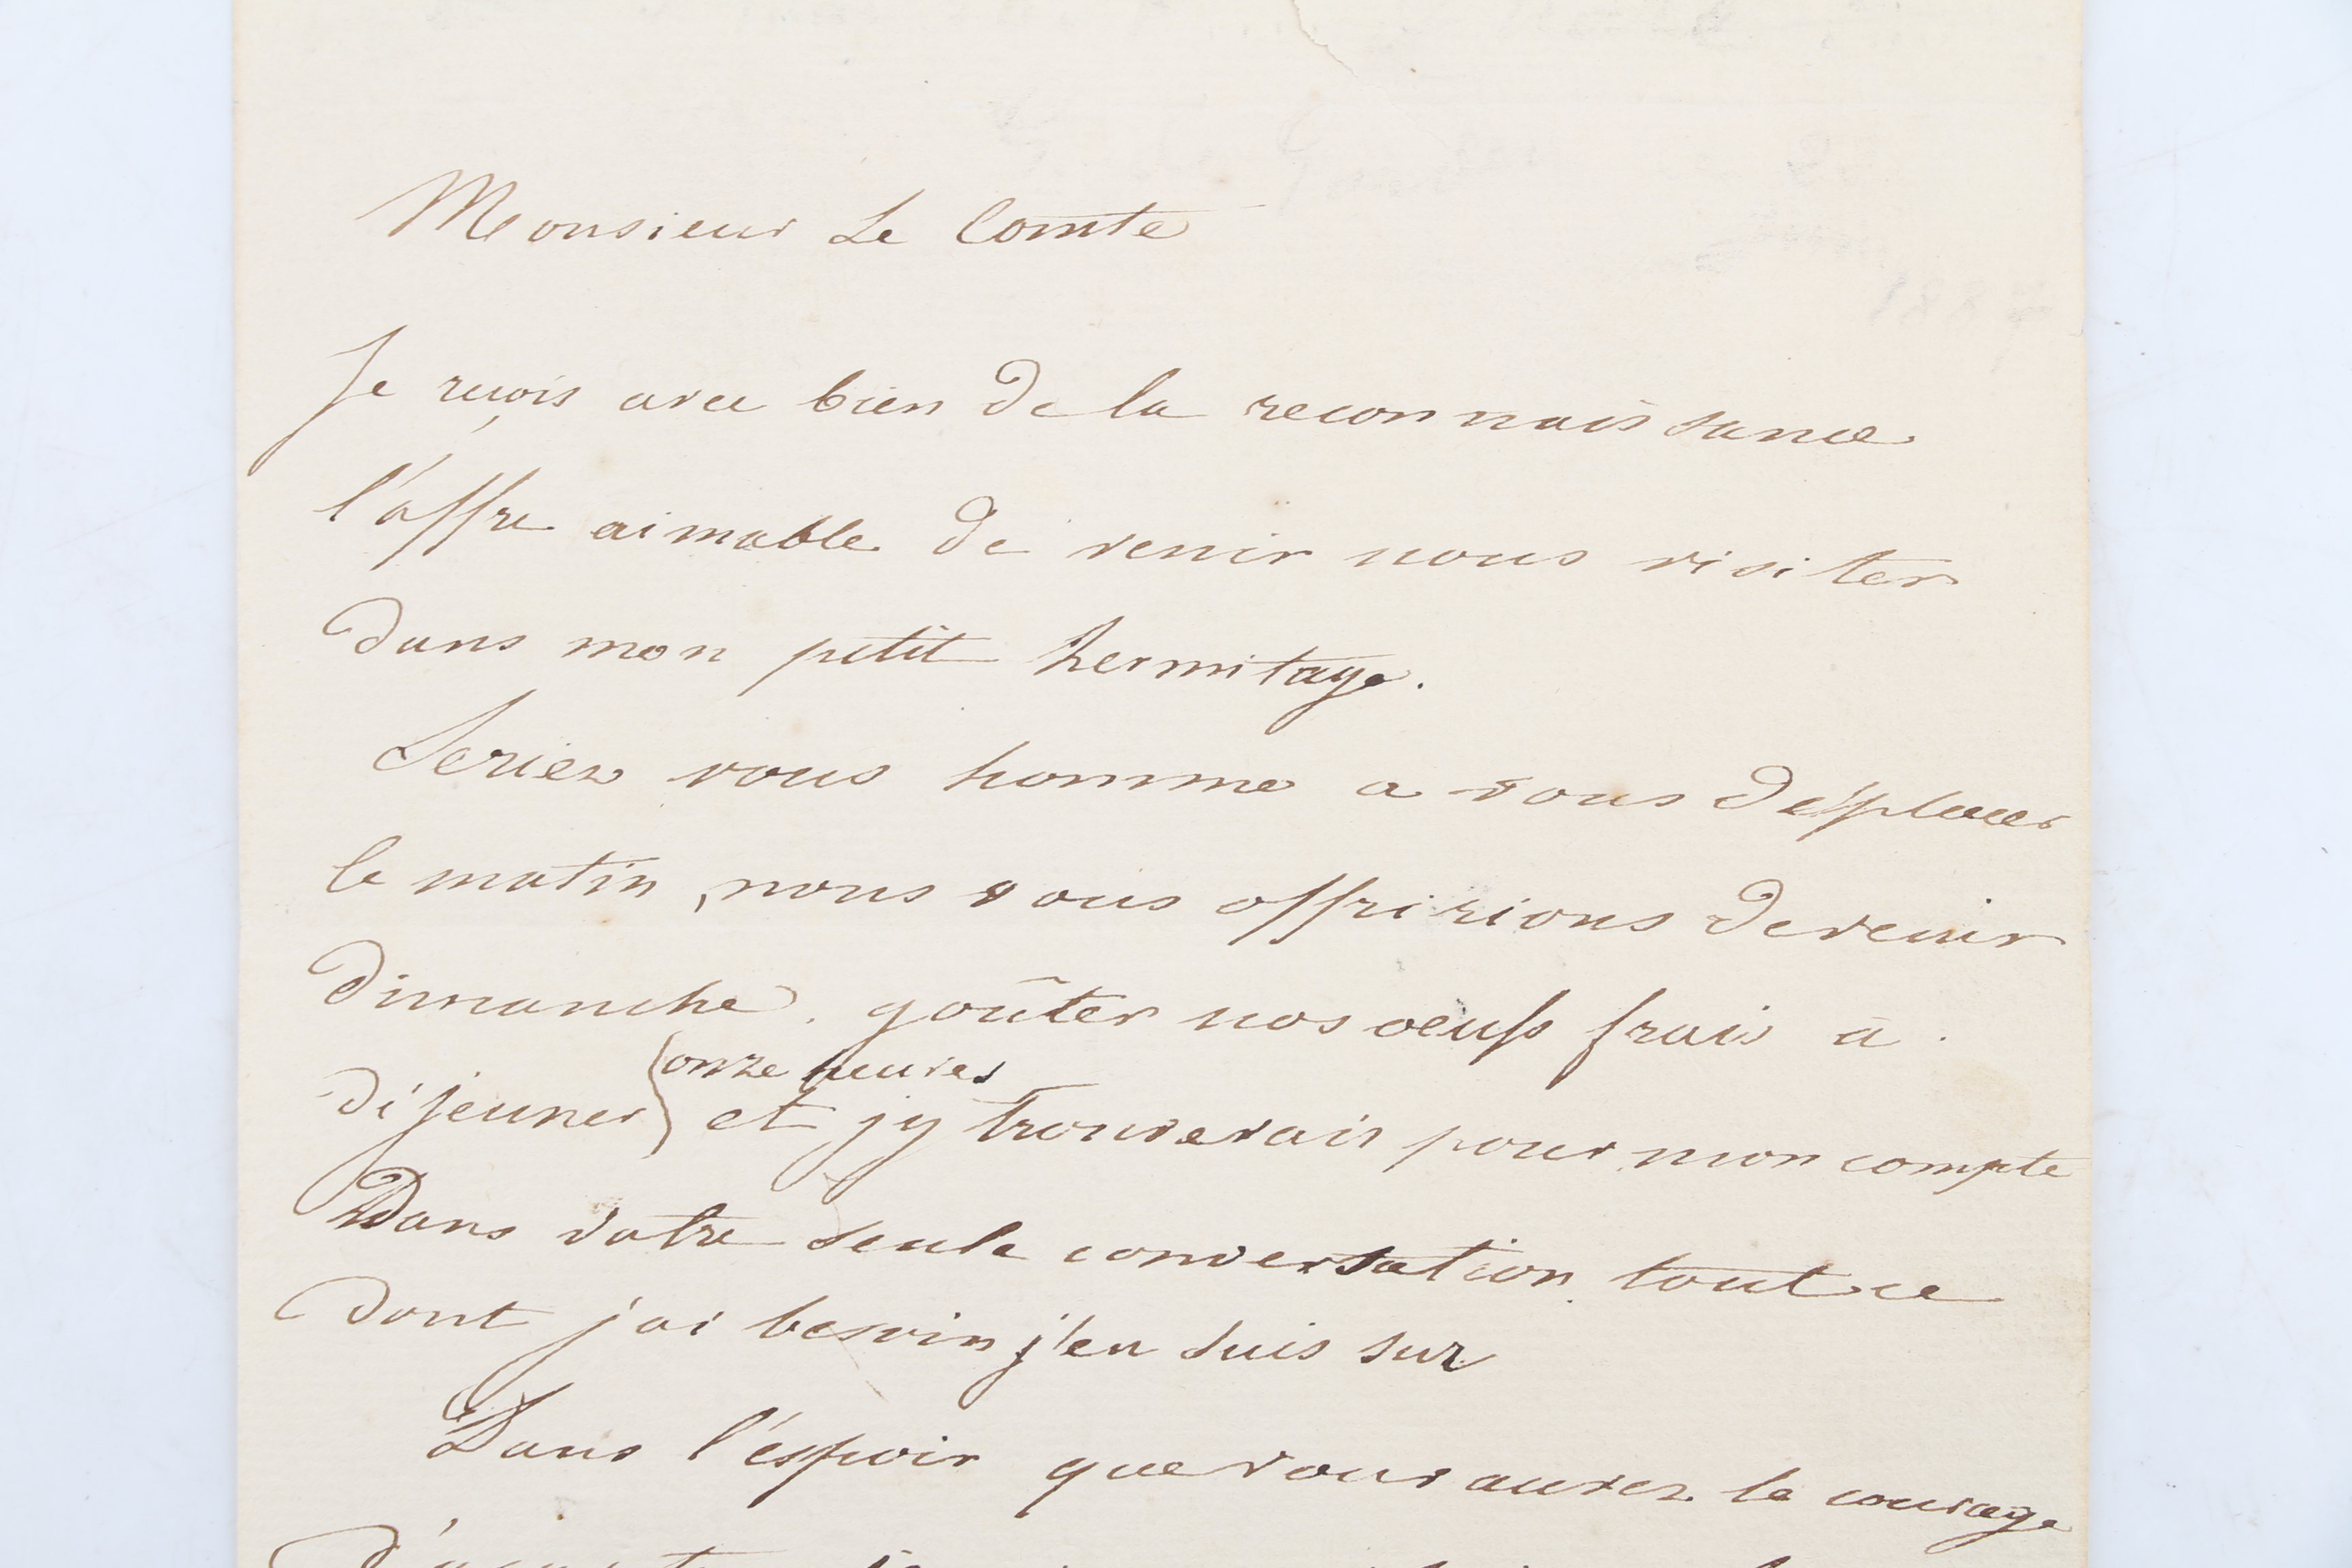 Monsieur Le Comte
Je reçois avec bien de la reconnaissance
l'offre aimable de venir nous visiter
dans mon petit hermitage.
Seriez vous homme a vous desplacer
le matin, nous vous offririons de venir
dimanche. goûter nos oeufs frais a
onze heures
déjeuner et j'y trouverais pour mon compte
Dans votre seule conversation tout ce
dont j'ai besoin j'en suis sur
Dans l'espoir que vous aurez le courage